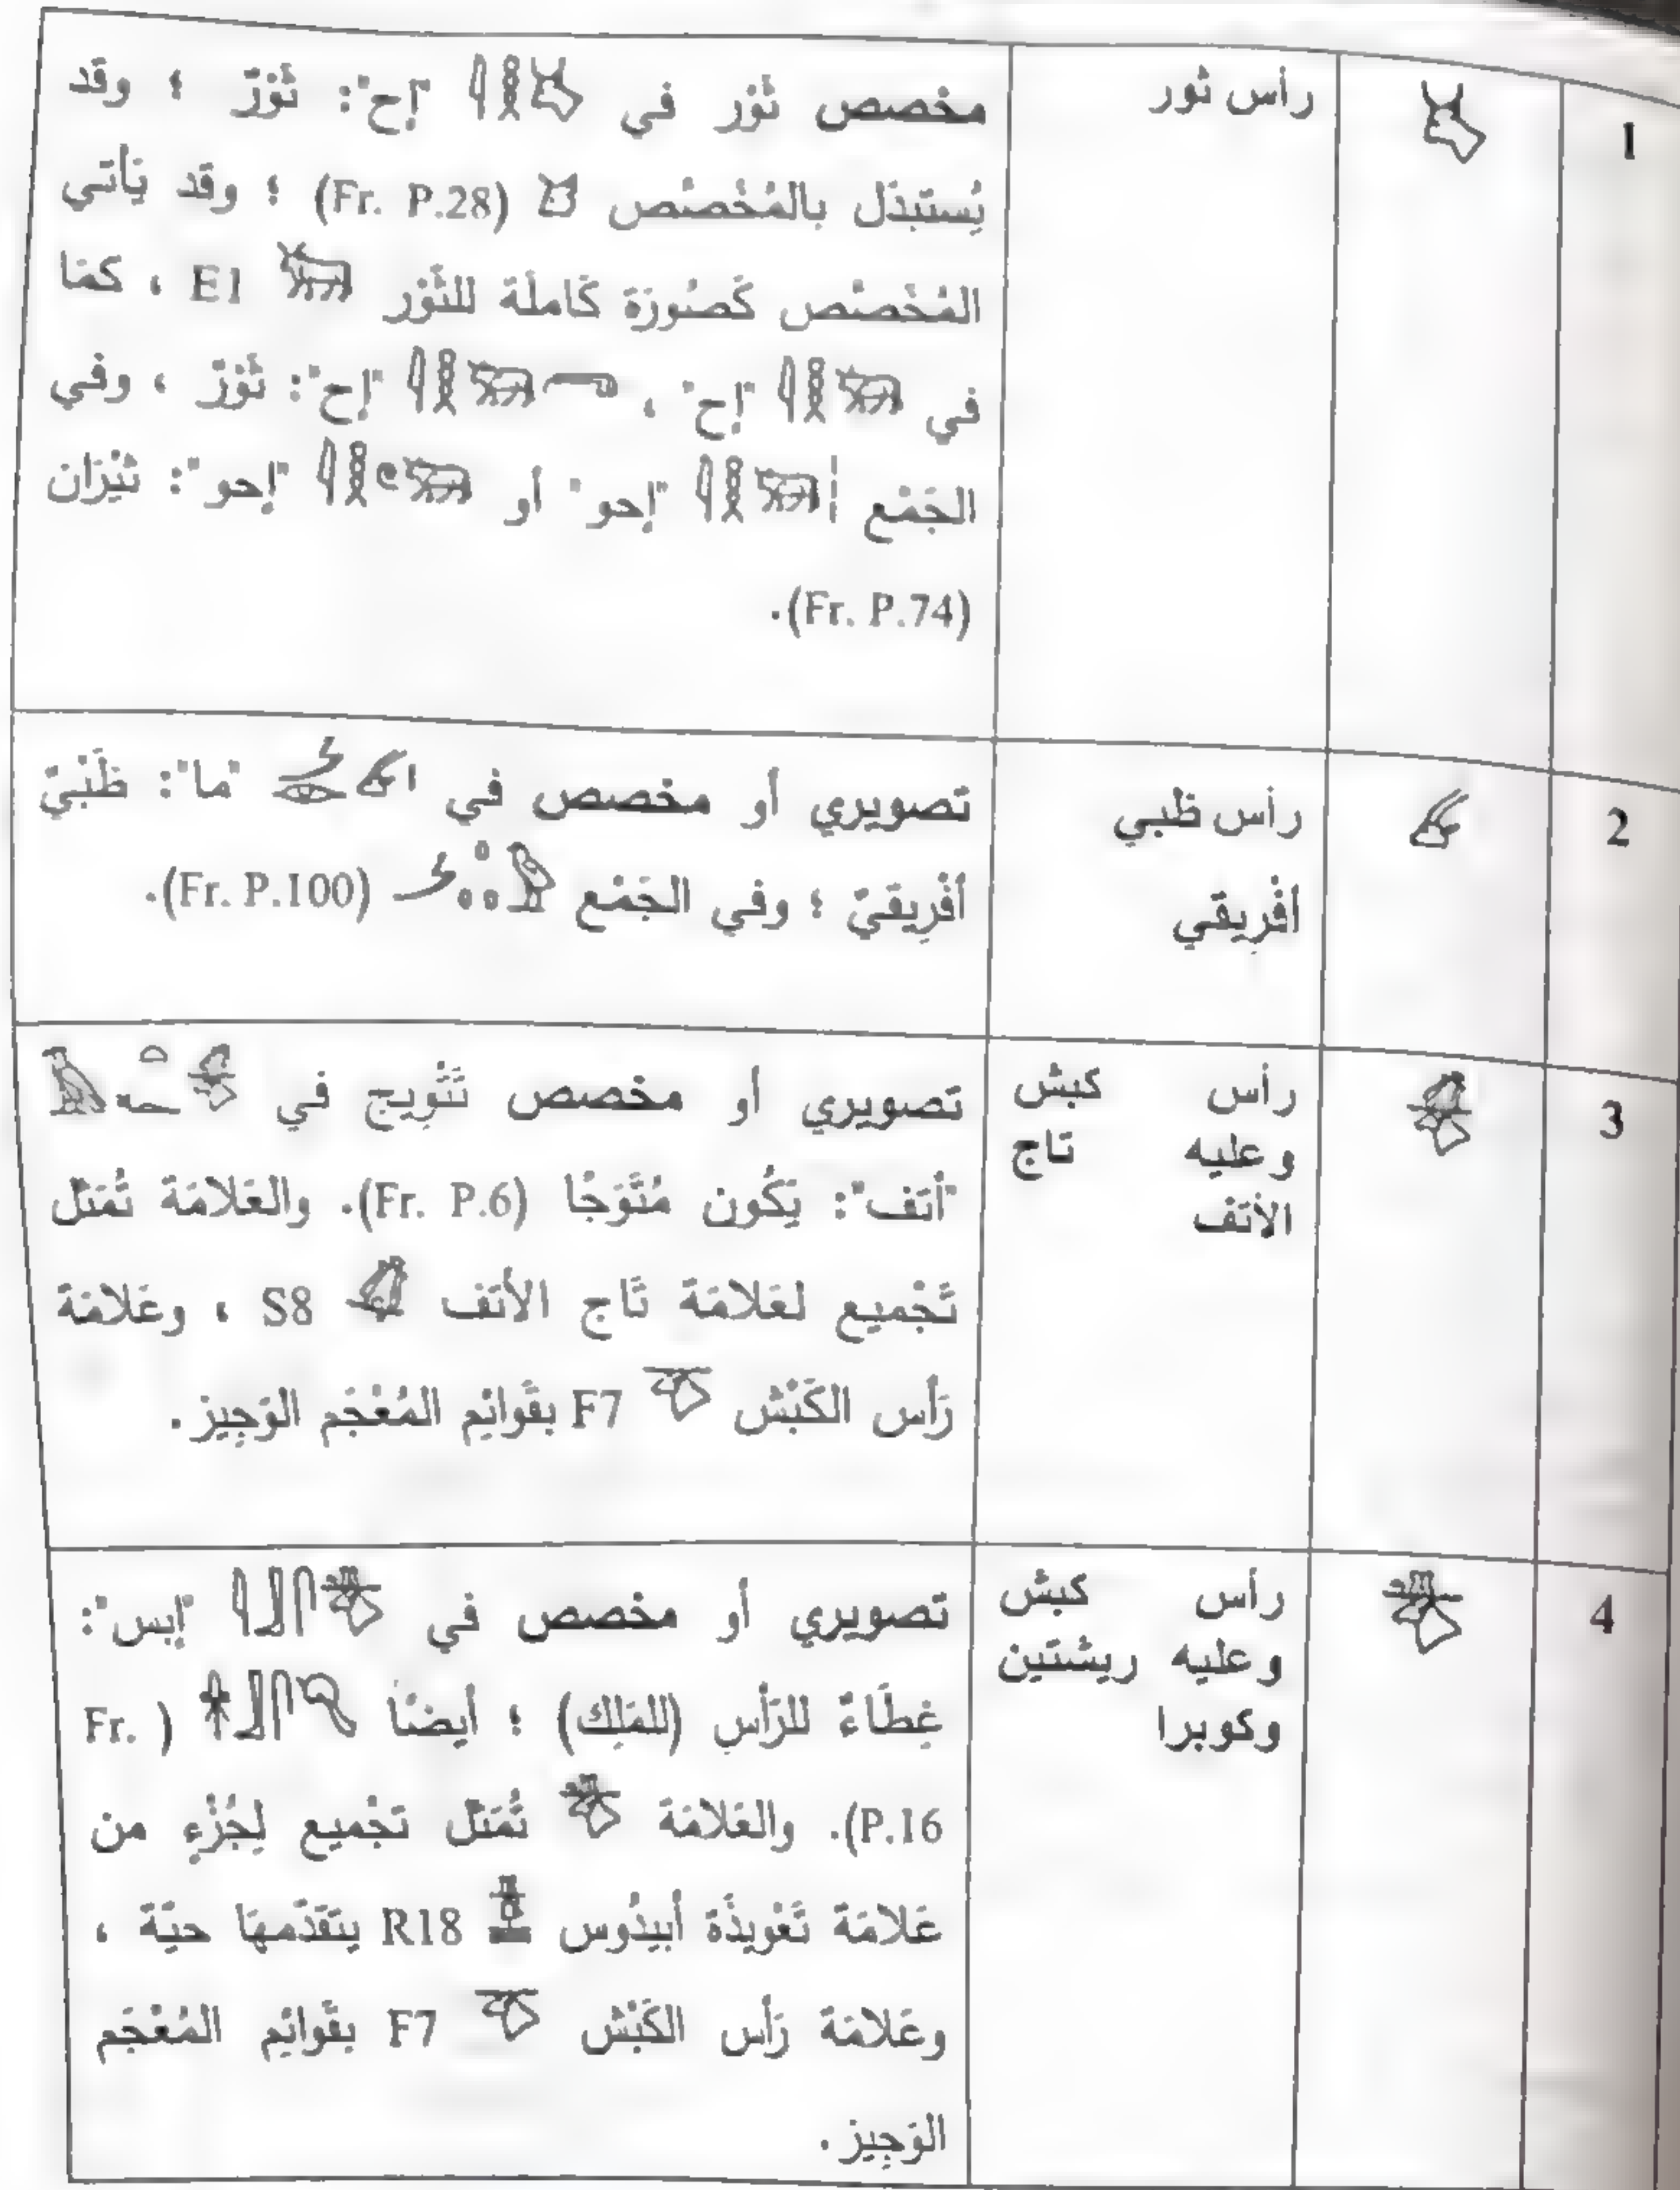 1
رأس ثور
مخصص ثَوْر في "إح": ثَوْرٌ ؛ وقد
يُستَبدَل بالمُخَصَّص (Fr. P.28) ؛ وقد يَأتي
المُخَصَّص كَصُورَة كَاملَة للثَّوْر E1 ، كمَا
في "إح" ، "إح": ثَوْرٌ ، وفي
الجَمْع "إحو" أو "إحو": ثيْرَان
(Fr. P.74).
2
رأس ظبي
أفْرِيقي
تصويري أو مخصص في "ما": ظَبْيٌ
أفْرِيقيٌ ؛ وفي الجَمْع (Fr. P.100).
3
رأس كبش
وعليه تاج
الأتف
تصويري أو مخصص تَتْوِيج في
"أتف": يَكُون مُتَوَجًا (Fr. P.6). والعَلامَة تُمَثل
تَجْميع لعَلامَة تَاج الأتَف S8 ، وعَلامَة
رَأس الكَبْش F7 بقَوائِم المُعْجَم الوَجِيز.
4
رأس كبش
وعليه ريشتين
وكوبرا
تصويري أو مخصص في "إبس":
غِطَاءٌ للرَأسِ (للمَلِك) ؛ أيضًا ( Fr.
P.16). والعَلامَة تُمَثل تجْميع لِجُزْءٍ من
عَلامَة تَعْويذَة أبيدُوس R18 يتَقدّمهَا حيّة ،
وعَلامَة رَأس الكَبْش F7 بقَوائِم المُعْجَم
الوَجِيز.